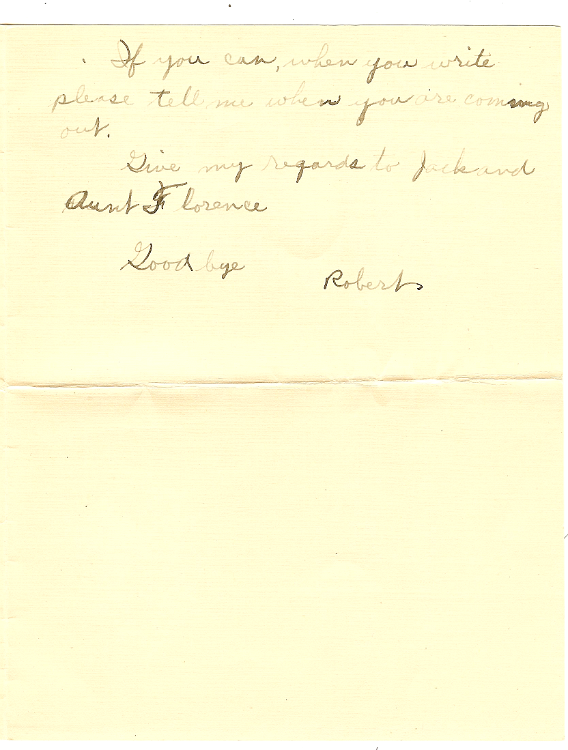 If you can, when you write
please tell me when you are coming
out.
Give my regards to Jack and
Aunt Florence
Good bye
Robert